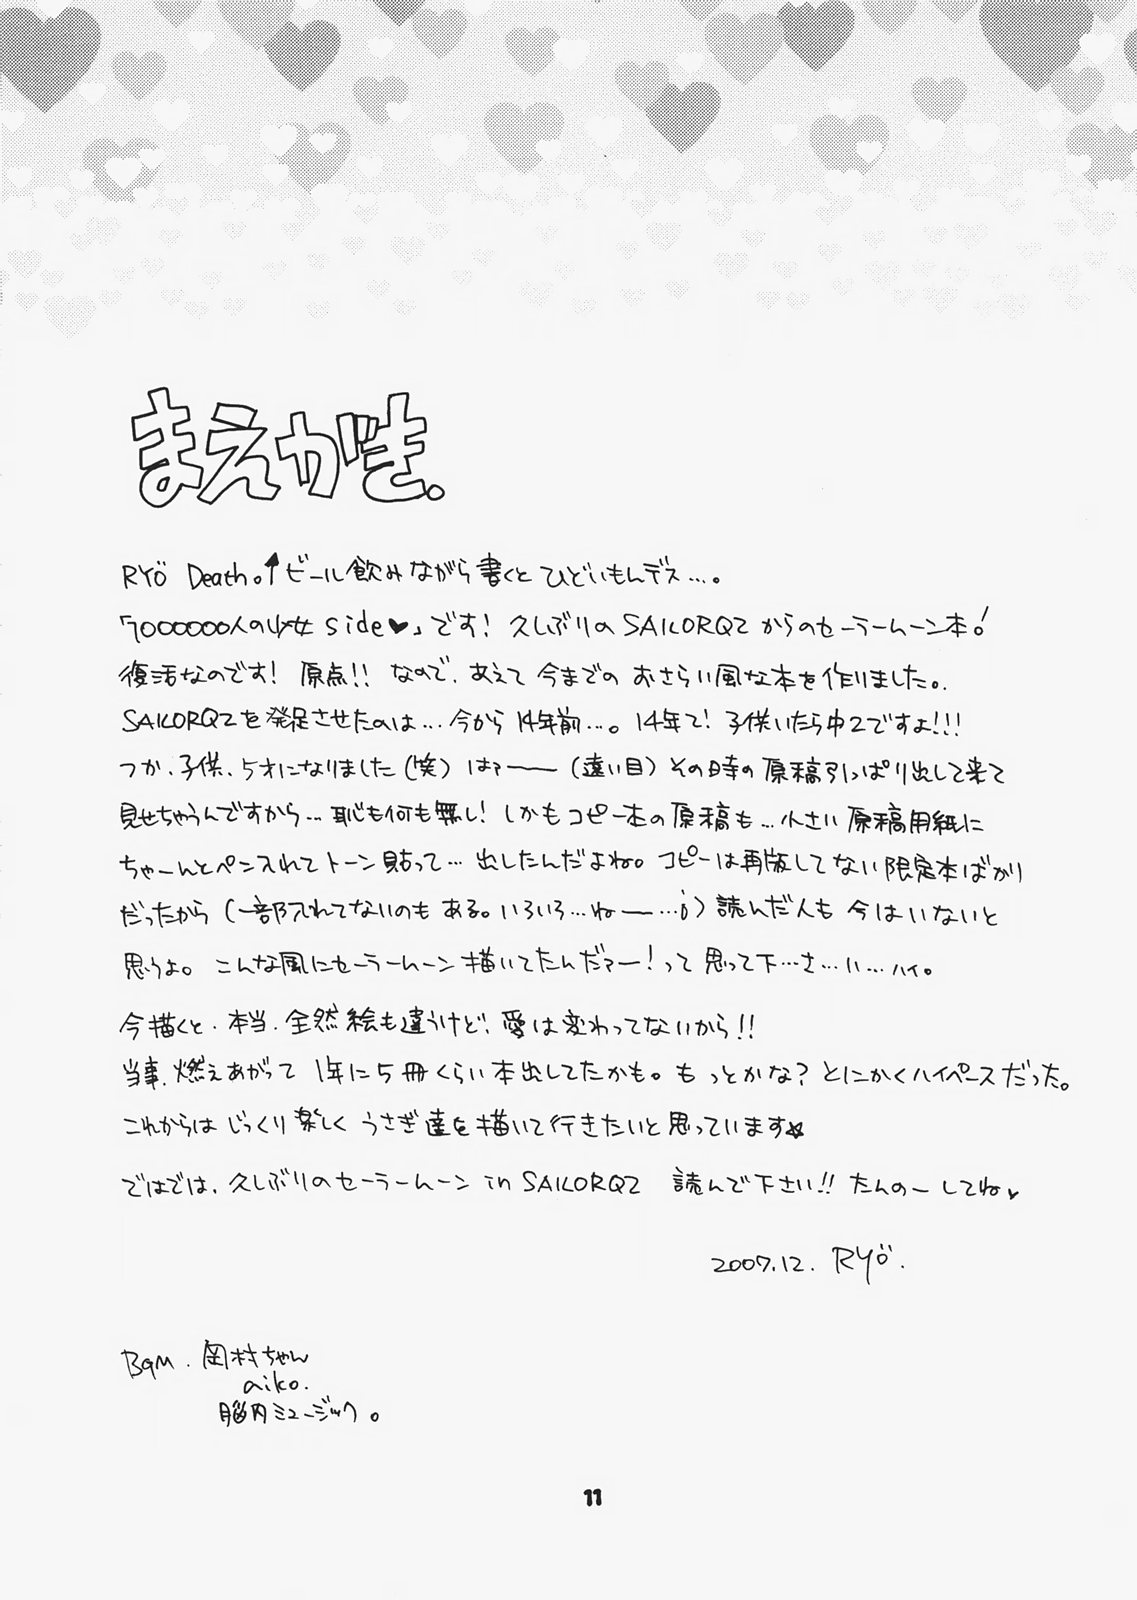 まえがき。
RYÖ Death。↑ビール飲みながら書くとひどいもんデス…。
「7000000人の少女 side♥」です! 久しぶりのSAILORQ2からのセーラームーン本!
復活なのです! 原点!! なので、あえて今までのおさらい風な本を作りました。
SAILORQ2を発足させたのは…今から14年前…。14年て! 子供いたら中2ですよ!!!
つか、子供、5才になりました(笑) はァ―― (遠い目) その時の原稿引っぱり出して来て
見せちゃうんですから… 恥も何も無し! しかもコピー本の原稿も…小さい原稿用紙に
ちゃーんとペン入れてトーン貼って…出したんだよね。コピーは再版してない限定本ばかり
だったから (一部入れてないのもある。いろいろ…ねー…) 読んだ人も今はいないと
思うよ。こんな風にセーラームーン描いてたんだァー! って思って下…さ…い…ハイ。
今描くと、本当、全然絵も違うけど、愛は変わってないから!!
当事、燃えあがって 1年に5冊くらい本出してたかも。もっとかな? とにかくハイペースだった。
これからはじっくり楽しくうさぎ達を描いて行きたいと思っています☆
ではでは、久しぶりのセーラームーン in SAILORQ2 読んで下さい!! たんのーしてね♥
2007.12. RYÖ.
BGM. 岡村ちゃん
aiko.
脳内ミュージック。
11